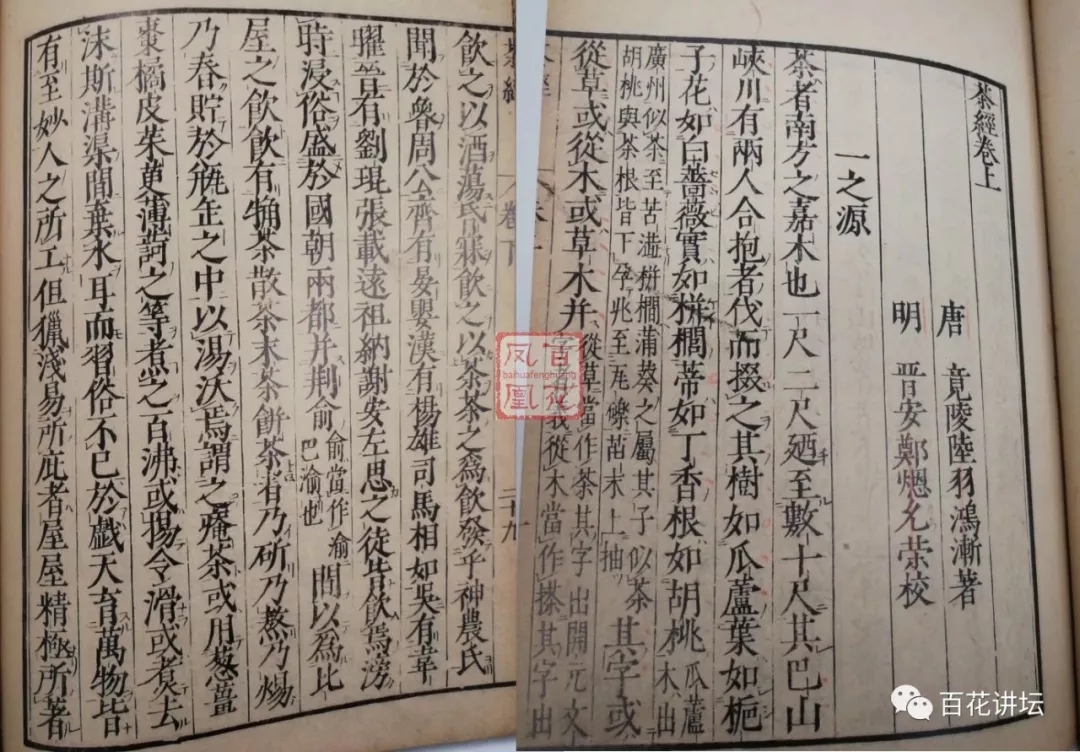 茶經卷上
唐 竟陵陸羽鴻漸著
明 晉安鄭熜允榮校
一之源
茶者南方之嘉木也一尺二尺廼至數十尺其巴山
峽川有兩人合抱者伐而掇之其樹如瓜蘆葉如梔
子花如白薔薇實如栟櫚蒂如丁香根如胡桃瓜蘆木出
廣州似茶至苦澁栟櫚蒲葵之屬其子似茶
胡桃與茶根皆下孕兆至瓦礫苗木上抽其字或
從草或從木或草木并從草當作茶其字出開元文
字音義從木當作搽其字出
茶經 卷下 二十九
飲之以酒蕩昏寐飲之以茶茶之爲飲發乎神農氏
聞於魯周公齊有晏嬰漢有楊雄司馬相如吳有韋
曜晉有劉琨張載遠祖納謝安左思之徒皆飲焉滂
時浸俗盛於國朝兩都并荆俞俞當作渝
巴渝也間以爲比
屋之飲飲有觕茶散茶末茶餅茶者乃斫乃熬乃煬
乃舂貯於缾缶之中以湯沃焉謂之痷茶或用葱薑
棗橘皮茱萸薄訶之等煮之百沸或揚令滑或煮去
沫斯溝渠間棄水耳而習俗不已於戲天育萬物皆
有至妙人之所工但獵淺易所庇者屋屋精極所著
百花鳳凰
baihuafenghuang
百花讲坛